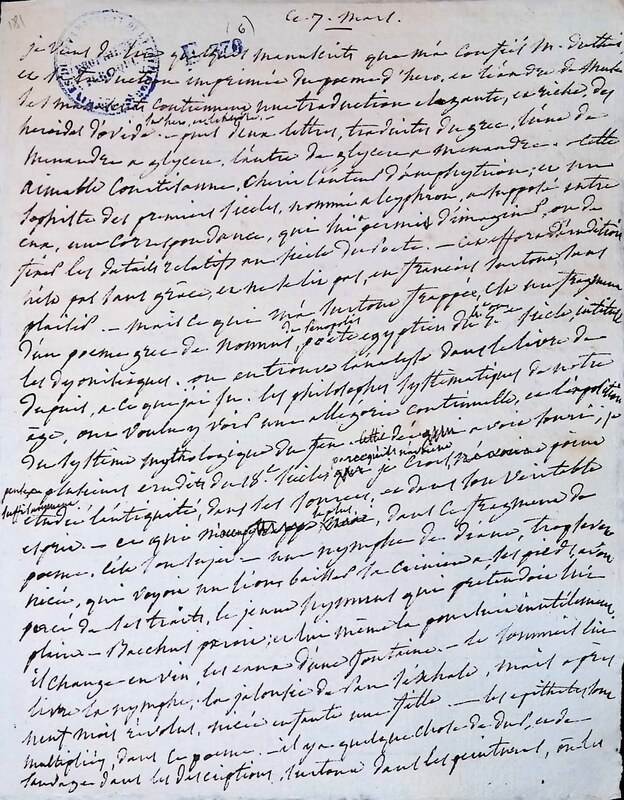 181
(6)
Ce 7. Mars.
je viens de lire quelques manuscrits que m'a confié M.
E 376
et la traduction imprimée du poeme d'hero, et léandre de
les manuscrits contiennent une traduction élégante, et riche, des
heroides d'ovide. — puis deux lettres, traduites du grec, l'une de
menandre a glycere, l'autre de glycere a menandre. — cette
aimable Courtisanne, cherit l'auteur d'amphytrion; et un
sophiste des premiers siecles, nommé alcyphron, a supposé entre
eux, une Correspondance, qui lui a permis d'imaginer, ou de
tirer les details relatifs au siecle du poete. — cet effort d'erudition
n'est pas sans grâce, et ne se lit pas, en francois surtout sans
plaisir. — mais ce qui m'a surtout frappée, c'est un fragment
d'un poeme grec de nonnus, de panopolis poete egyptien du siecle, intitulé
les dyonisiaques. on en trouve l'analyse dans le livre de
dupuis, a ce que j'ai su. les philosophes systematiques de notre
âge, ont voulu y voir une allegorie continuelle, et l'exposition
du systême mythologique du feu.
plusieurs erudits du 18e siecle je crois poeme
étudié l'antiquité, dans ses sources, et dans son veritable
esprit. — ce que le plus, dans ce fragment de
poeme, c'est son sujet — une nymphe de diane, trop severe
nicée, qui voyoit un lion baisser sa criniere a ses pieds, avoit
percé de ses traits, le jeune hymnus qui pretendoit lui
plaire — Bacchus paroit; et lui même la poursuit inutilement
il change en vin, les eaux d'une fontaine. — le sommeil lui
livre la nymphe, la jalousie de pan s'exhale, mais après
neuf mois révolus, nicée enfante une fille — les epithetes sont
multipliées, dans ce poeme. — il y a quelque chose de dur, et de
sauvage dans les descriptions, surtout dans les peintures, où les